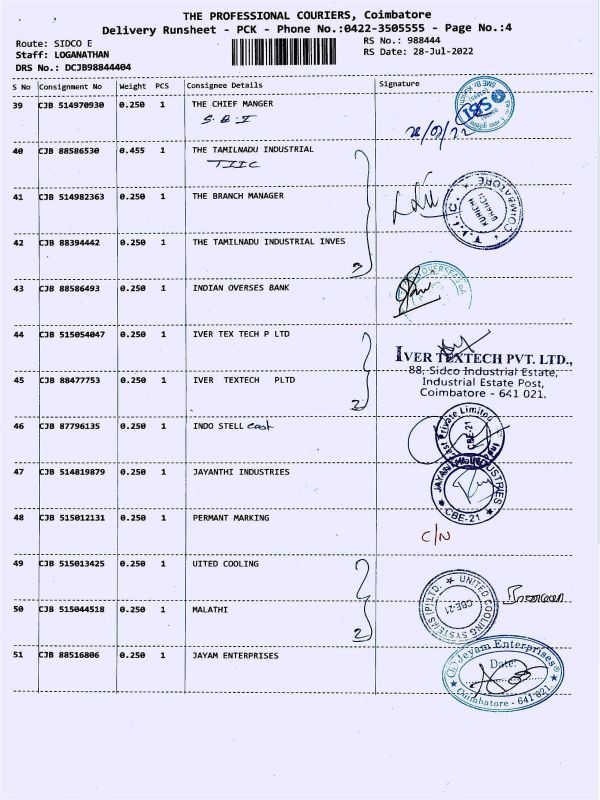 THE PROFESSIONAL COURIERS, Coimbatore
Delivery Runsheet - PCK - Phone No.:0422-3505555 - Page No.:4
Route: SIDCO E
RS No.: 988444
Staff: LOGANATHAN
RS Date: 28-Jul-2022
DRS No.: DCJB98844404
S No Consignment No Weight PCS Consignee Details Signature
39 CJB 514970930 0.250 1 THE CHIEF MANGER
S.B.I
SBI
28/07/22
40 CJB 88586530 0.455 1 THE TAMILNADU INDUSTRIAL
TIIC
41 CJB 514982363 0.250 1 THE BRANCH MANAGER
T.I.I.C. KURICHI BRANCH COIMBATORE
42 CJB 88394442 0.250 1 THE TAMILNADU INDUSTRIAL INVES
3
43 CJB 88586493 0.250 1 INDIAN OVERSES BANK
44 CJB 515054047 0.250 1 IVER TEX TECH P LTD
IVER TEXTECH PVT. LTD.,
88, Sidco Industrial Estate,
45 CJB 88477753 0.250 1 IVER TEXTECH PLTD
Industrial Estate Post,
Coimbatore - 641 021.
2
46 CJB 87796135 0.250 1 INDO STELL cast
Private Limited
CBE-21
47 CJB 514819879 0.250 1 JAYANTHI INDUSTRIES
JAYANTHI INDUSTRIES
CBE-21
48 CJB 515012131 0.250 1 PERMANT MARKING
C/N
49 CJB 515013425 0.250 1 UITED COOLING
UNITED COOLING SYSTEMS (P) LTD.
CBE-21
50 CJB 515044518 0.250 1 MALATHI
2
51 CJB 88516806 0.250 1 JAYAM ENTERPRISES
Jayam Enterprises
Date:
Coimbatore - 641 021.